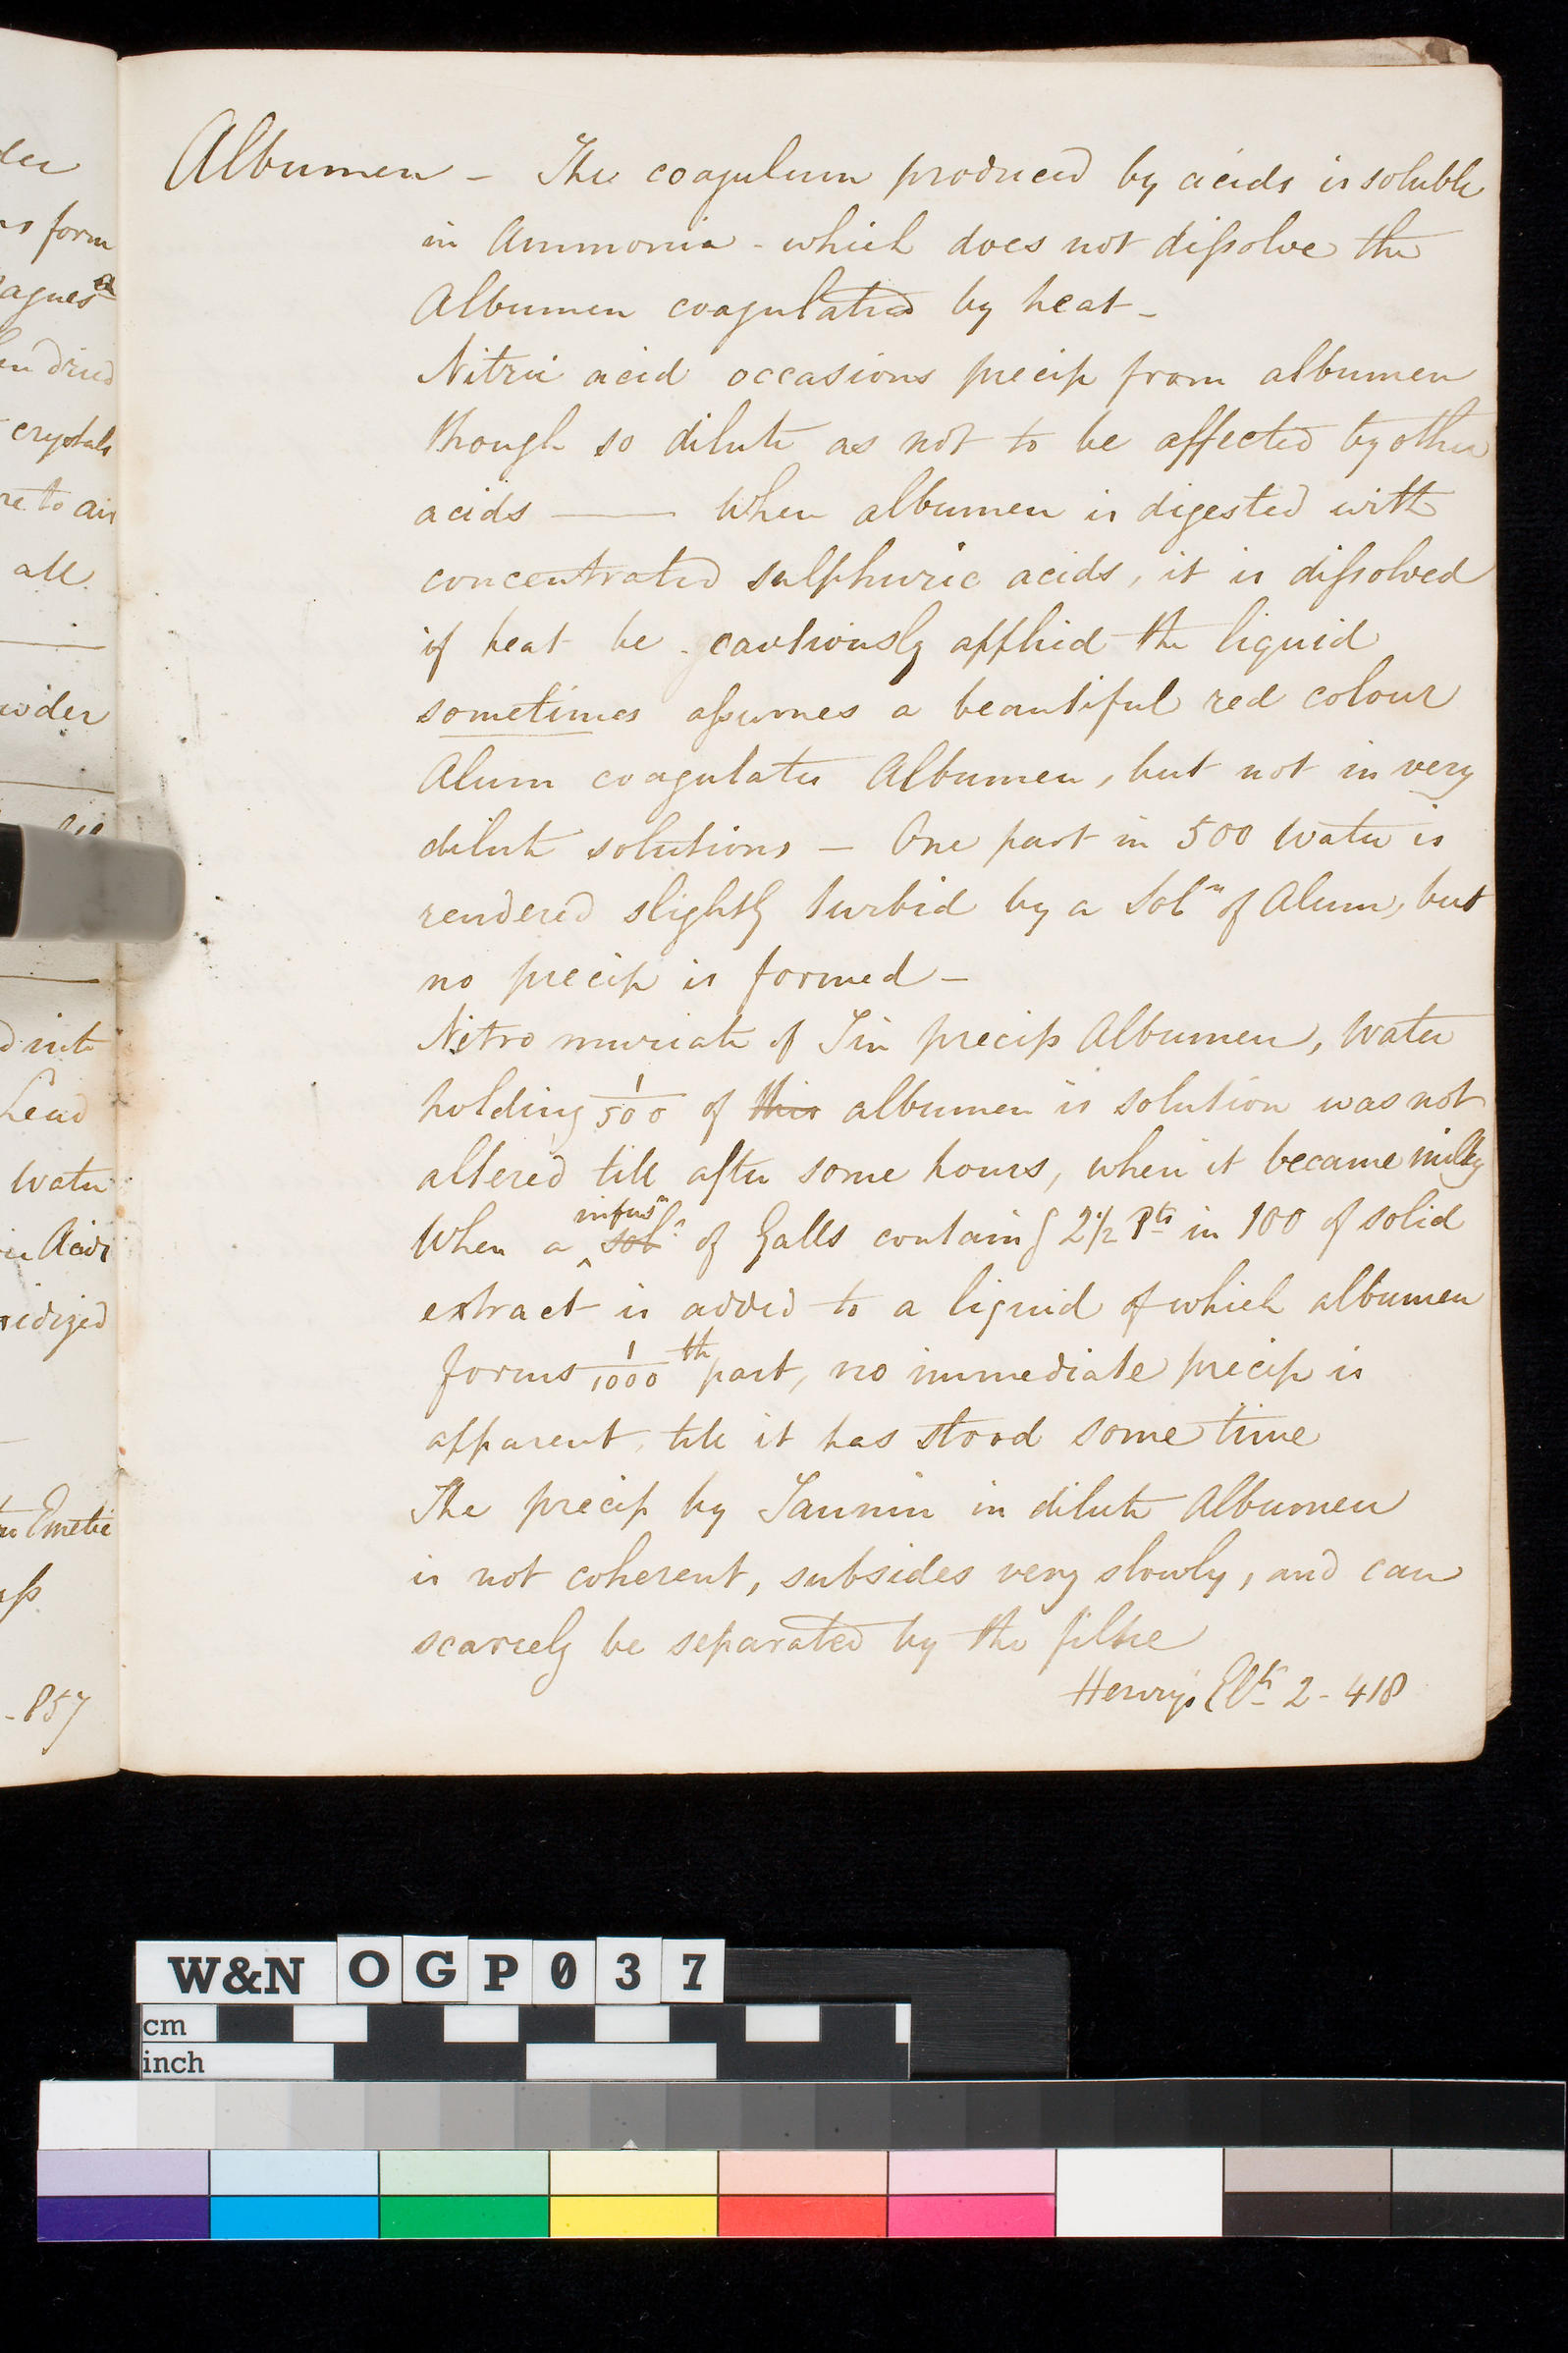 der
ns form
agnesa
en dried
crystals
re to air
all
wder
d into
Lead
Water
Acids
xidized
Emetic
- 857
Albumen - The coagulum produced by acids is soluble
in Ammonia - which does not dissolve the
Albumen coagulated by heat -
Nitric acid occasions precip from albumen
though so dilute as not to be affected by other
acids —— When albumen is digested with
concentrated sulphuric acids, it is dissolved
if heat be cautiously applied the liquid
sometimes assumes a beautiful red colour
Alum coagulates Albumen, but not in very
dilute solutions — One part in 500 Water is
rendered slightly turbid by a Solⁿ of Alum, but
no precip is formed -
Nitro muriate of Tin precips Albumen, Water
holding 1/500 of this albumen in solution was not
altered till after some hours, when it became milky
When a infusⁿ solⁿ of Galls containg 2½ Pts in 100 of solid
extract is added to a liquid of which albumen
forms 1/1000 th part, no immediate precip is
apparent, till it has stood some time
The precip by Tannin in dilute Albumen
is not coherent, subsides very slowly, and can
scarcely be separated by the filtre
Henry's Elts 2 - 418
W&N OGP037
cm
inch